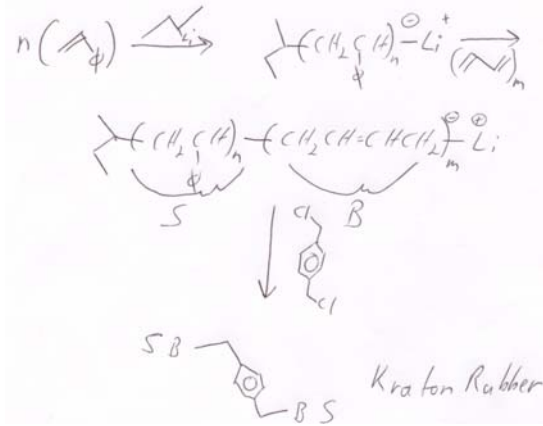 n ( ϕ ) Li (CH₂CH)ₙ ⊖ Li⁺ ( )ₘ
ϕ
(CH₂CH)ₙ (CH₂CH=CHCH₂)ₘ ⊖ Li ⊕
ϕ
S B
Cl
Cl
S B
B S
Kraton Rubber